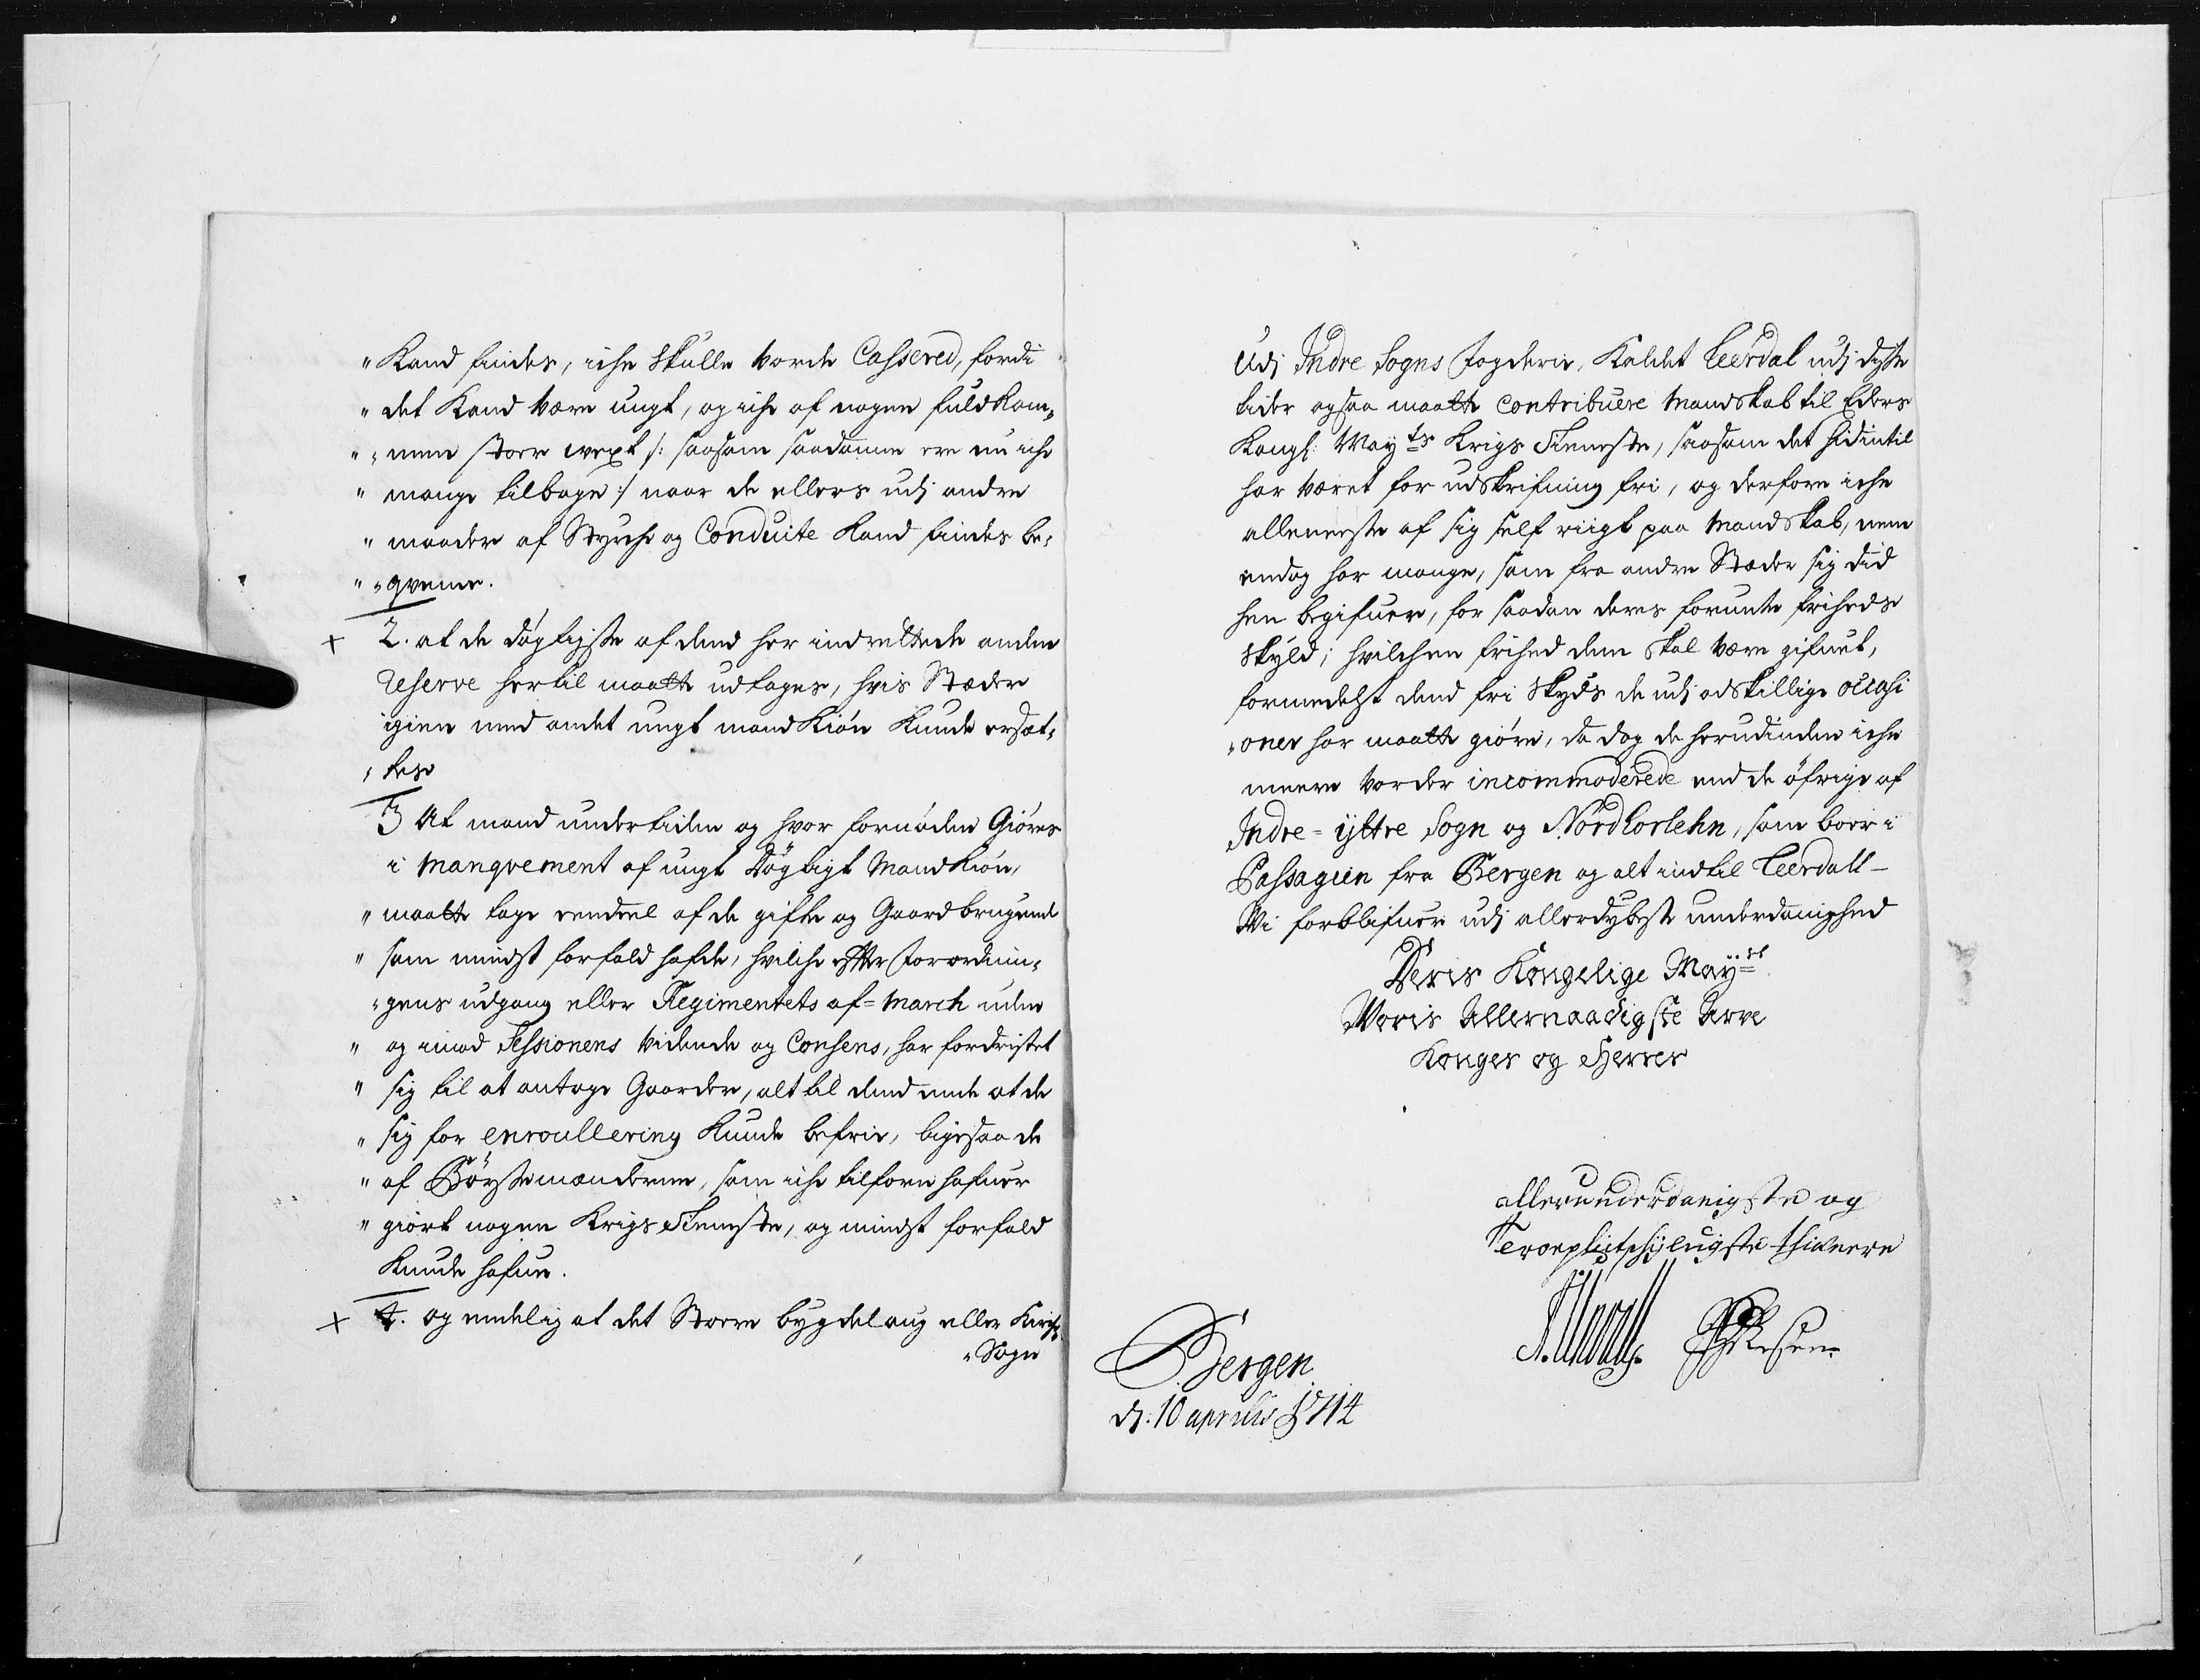 " Kand findes, iche skulle vorde Cassered, fordi
" det Kand være ungt, og iche af nogen fuldkom¬
" " men stoer wext /: saasom saadanne ere nu iche
" mange tilbage :/ naar de ellers udj andre
" maader af Styrche og Conduite Kand findes be¬
" " qveme.
+ 2. at de døgtigste af dend her indrettede anden
Reserve hertil maatte udtages, hvis Stæder
igien med andet ungt mandkiøn Kunde ersæt¬
" tes
3 At mand undertiden og hvor fornøden Giøres
i Manqvement af ungt Døgtigt Mandkiøn,
" maatte tage eendeel af de gifte og Gaardbrugende
" som mindst forfald hafde, hvilche efter Forordnin¬
" gens udgang eller Regimentets af=March uden
" og imod Sessionens vidende og Consens, har fordristet
" sig til at antage Gaarder, alt til dend ende at de
" sig for enroullering Kunde befrie, ligesaa de
" af Bøyttemænderne, som iche tilforn hafuer
" giort nogen Krigs Tienneste, og mindst forfald
Kunde hafue.
+ 4. og endelig at det Støere bygdelaug eller Kirche
" Sogn
Udj Indre Sogns Fogderie, Kaldet Leerdal udj disse
tider ogsaa maatte contribuere Mandskab til Eders
Kongl: May:ts Krigs Tienneste, saasom det hidintil
har været for udskrifning fri, og derfore iche
alleeneste af sig self riigt paa Mandskab, men
endog har mange, som fra andre Stæder sig did
hen begifuer, for saadan deres forundte friheds
skyld; hvilchen frihed dem skal være gifuet,
formedelst dend fri Skyds de udj adskillige occasi
" oner har maatte giøre, da dog de herudinden iche
meere vorder incommoderede end de øfrige af
Indre= ÿttre Sogn og Nordhorlehn, som boer i
Passagien fra Bergen og alt indtil Leerdall —
Vi forblifuer udj allerdybeste underdanighed
Deris Kongelige May:st
Voris Allernaadigste Arve
Konges og Herres
allerunderdanigste og
Troepligtskyldigste thienere
Bergen
d: 10 aprilis 1714